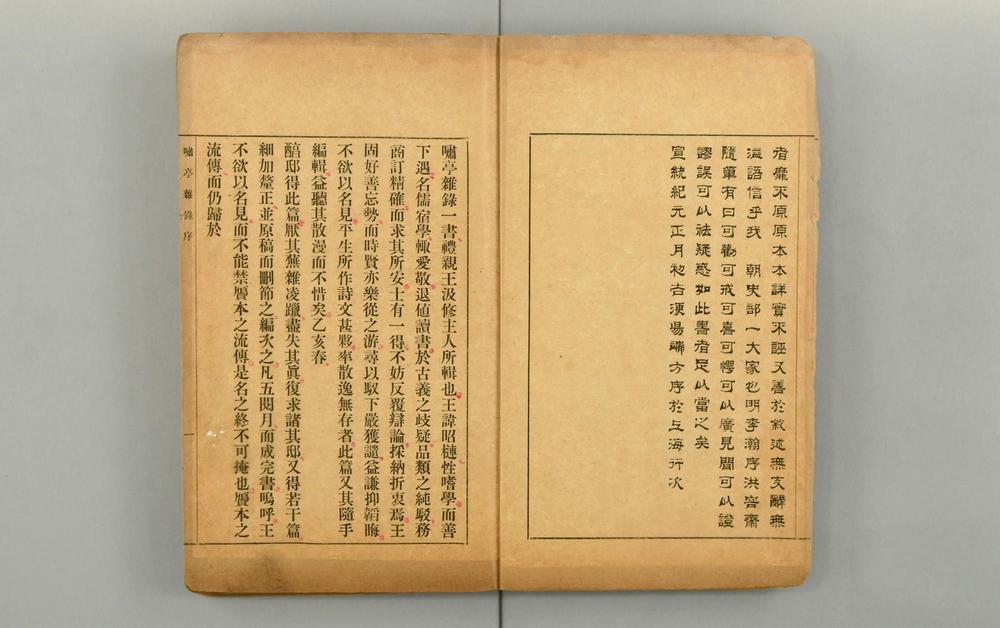 者靡不原原本本詳實不誣又善於敘述無支辭無
溢語信乎我　朝史部一大家也明李瀚序洪容齋
隨筆有曰可勸可戒可喜可愕可以廣見聞可以證
謬誤可以祛疑惑如此書者足以當之矣
宣統紀元正月初吉湨陽端方序於上海行次
嘯亭雜錄一書禮親王汲修主人所輯也王諱昭槤性嗜學而善
下遇名儒宿學輒愛敬退值讀書於古義之歧疑品類之純駁務
商訂精確而求其所安士有一得不妨反覆辯論採納折衷焉王
固好善忘勢而時賢亦樂從之游尋以馭下嚴獲譴益謙抑韜晦
不欲以名見平生所作詩文甚夥率散逸無存者此篇又其隨手
編輯益聽其散漫而不惜矣乙亥春
醕邸得此篇厭其蕪雜凌躐盡失其眞復求諸其邸又得若干篇
細加釐正並原稿而刪節之編次之凡五閱月而成完書嗚呼王
不欲以名見而不能禁贗本之流傳是名之終不可掩也贗本之
流傳而仍歸於
嘯亭雜錄序
一